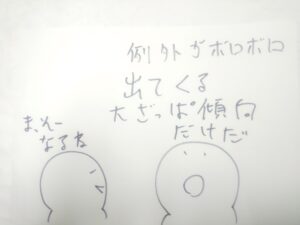 例外がボロボロ
出てくる
大ざっぱ傾向
だけだ
ま、そー
なるね